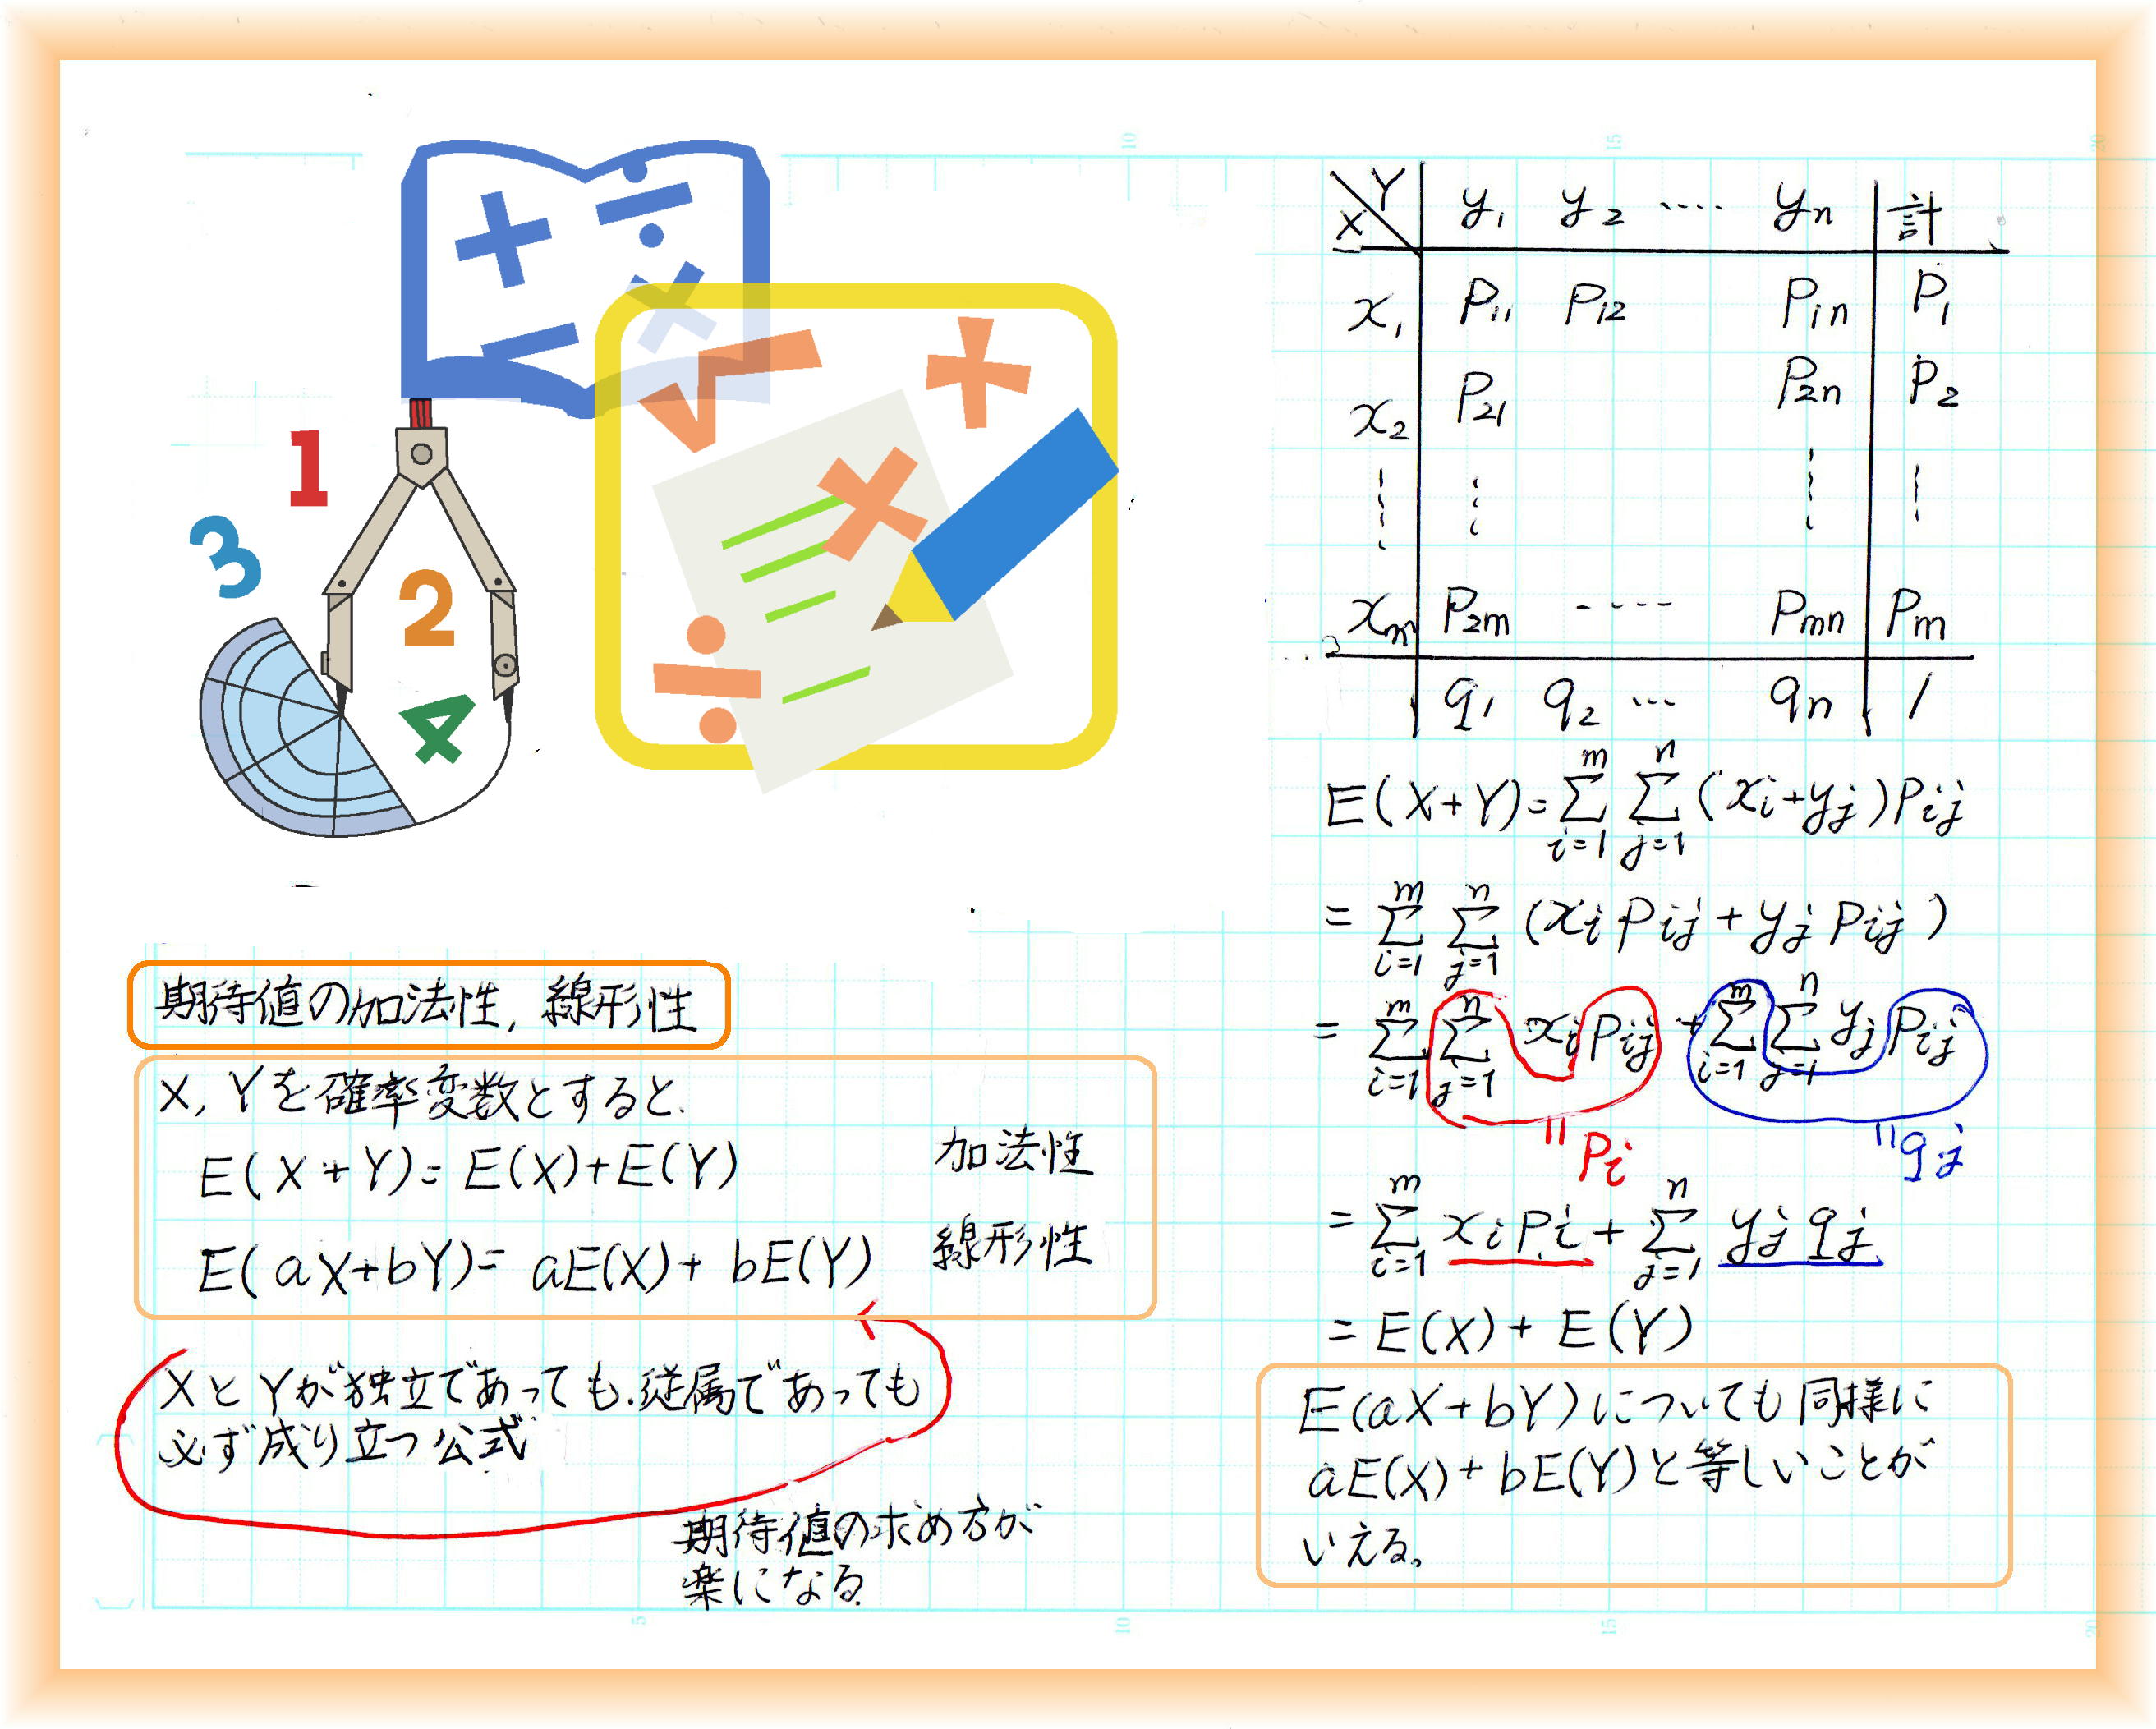 1
3
2
4
期待値の加法性, 線形性
X, Yを確率変数とすると.
E(X+Y)= E(X)+E(Y) 加法性
E(aX+bY)= aE(X)+ bE(Y) 線形性
XとYが独立であっても.従属であっても
必ず成り立つ公式
期待値の求め方が
楽になる.
X\Y y₁ y₂ ‥‥ yn 計
x₁ P₁₁ P₁₂ P₁n P₁
x₂ P₂₁ P₂n P₂
⋮ ⋮ ⋮ ⋮
xm P₂m ‥‥ Pmn Pm
q₁ q₂ … qn 1
E(X+Y)=Σ_{i=1}^{m} Σ_{j=1}^{n} (xi+yj)Pij
= Σ_{i=1}^{m} Σ_{j=1}^{n} (xi pij + yj pij)
= Σ_{i=1}^{m} Σ_{j=1}^{n} xi pij + Σ_{i=1}^{m} Σ_{j=1}^{n} yj pij
=Pi =qj
= Σ_{i=1}^{m} xi pi + Σ_{j=1}^{n} yj qj
= E(X) + E(Y)
E(aX+bY)についても同様に
aE(X)+bE(Y)と等しいことが
いえる。
5
10
15
20
10
15
20